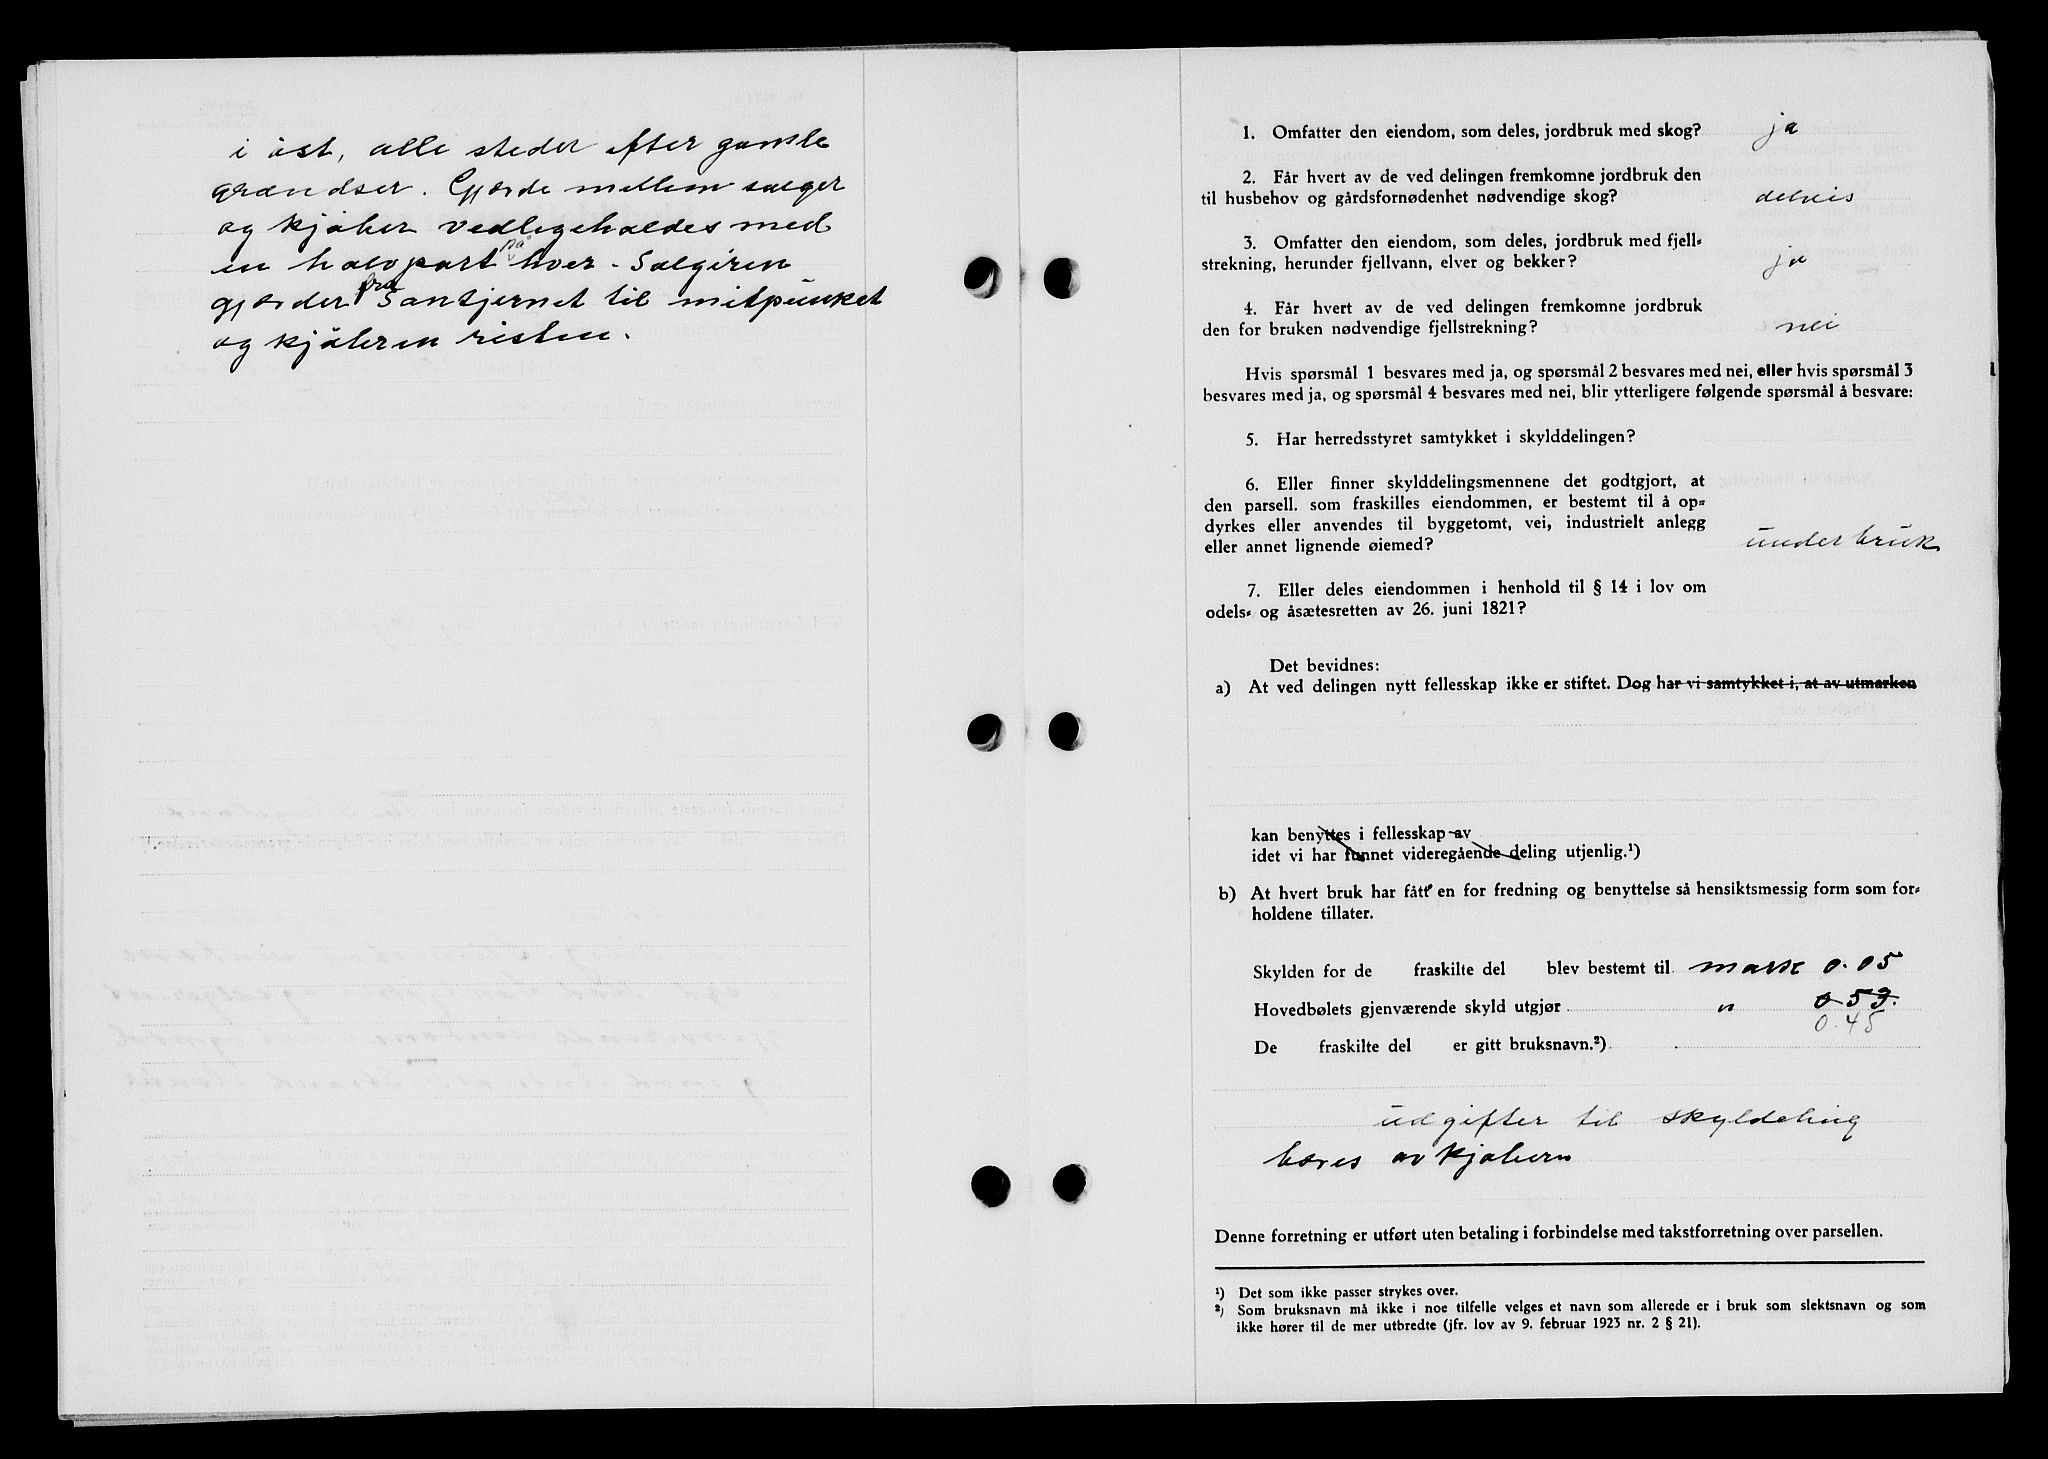 i øst, alle steder efter gamle
grændser. Gjærde mellem sælger
og kjøber vedligeholdes med
en halvpart på hver. Sælgeren
gjærder fra Santjernet til mitpunket
og kjøberen resten.
1. Omfatter den eiendom, som deles, jordbruk med skog? ja
2. Får hvert av de ved delingen fremkomne jordbruk den
til husbehov og gårdsfornødenhet nødvendige skog? delvis
3. Omfatter den eiendom, som deles, jordbruk med fjell-
strekning, herunder fjellvann, elver og bekker? ja
4. Får hvert av de ved delingen fremkomne jordbruk
den for bruken nødvendige fjellstrekning? nei
Hvis spørsmål 1 besvares med ja, og spørsmål 2 besvares med nei, eller hvis spørsmål 3
besvares med ja, og spørsmål 4 besvares med nei, blir ytterligere følgende spørsmål å besvare:
5. Har herredsstyret samtykket i skylddelingen?
6. Eller finner skylddelingsmennene det godtgjort, at
den parsell. som fraskilles eiendommen, er bestemt til å op-
dyrkes eller anvendes til byggetomt, vei, industrielt anlegg
eller annet lignende øiemed? under bruk
7. Eller deles eiendommen i henhold til § 14 i lov om
odels- og åsætesretten av 26. juni 1821?
Det bevidnes:
a) At ved delingen nytt fellesskap ikke er stiftet. Dog har vi samtykket i, at av utmarken
kan benyttes i fellesskap av
idet vi har funnet videregående deling utjenlig.¹)
b) At hvert bruk har fått en for fredning og benyttelse så hensiktsmessig form som for-
holdene tillater.
Skylden for de fraskilte del blev bestemt til mark 0.05
Hovedbølets gjenværende skyld utgjør " 0 53.
0.45
De fraskilte del er gitt bruksnavn.²)
udgifter til skyldeling
bæres av kjøberen
Denne forretning er utført uten betaling i forbindelse med takstforretning over parsellen.
¹) Det som ikke passer strykes over.
²) Som bruksnavn må ikke i noe tilfelle velges et navn som allerede er i bruk som slektsnavn og som
ikke hører til de mer utbredte (jfr. lov av 9. februar 1923 nr. 2 § 21).